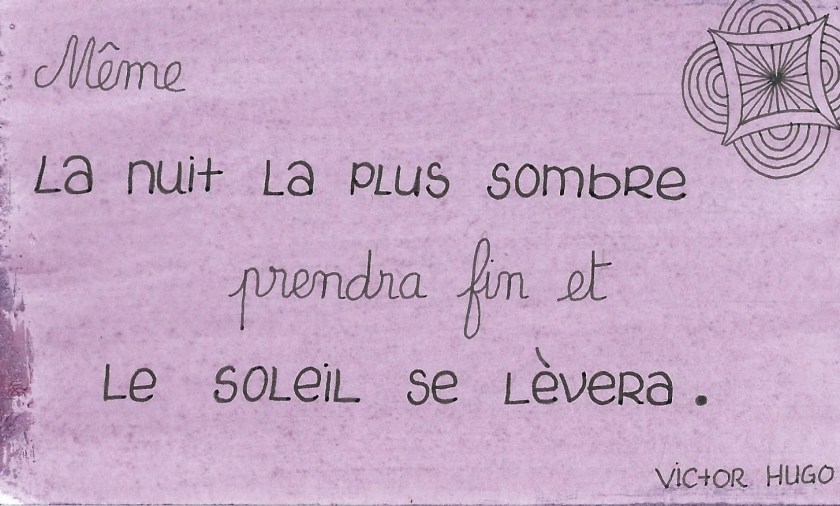 Même
La nuit La PLUS sombre
prendra fin et
Le SOLeiL se Lèvera.
VICTOR HUGO